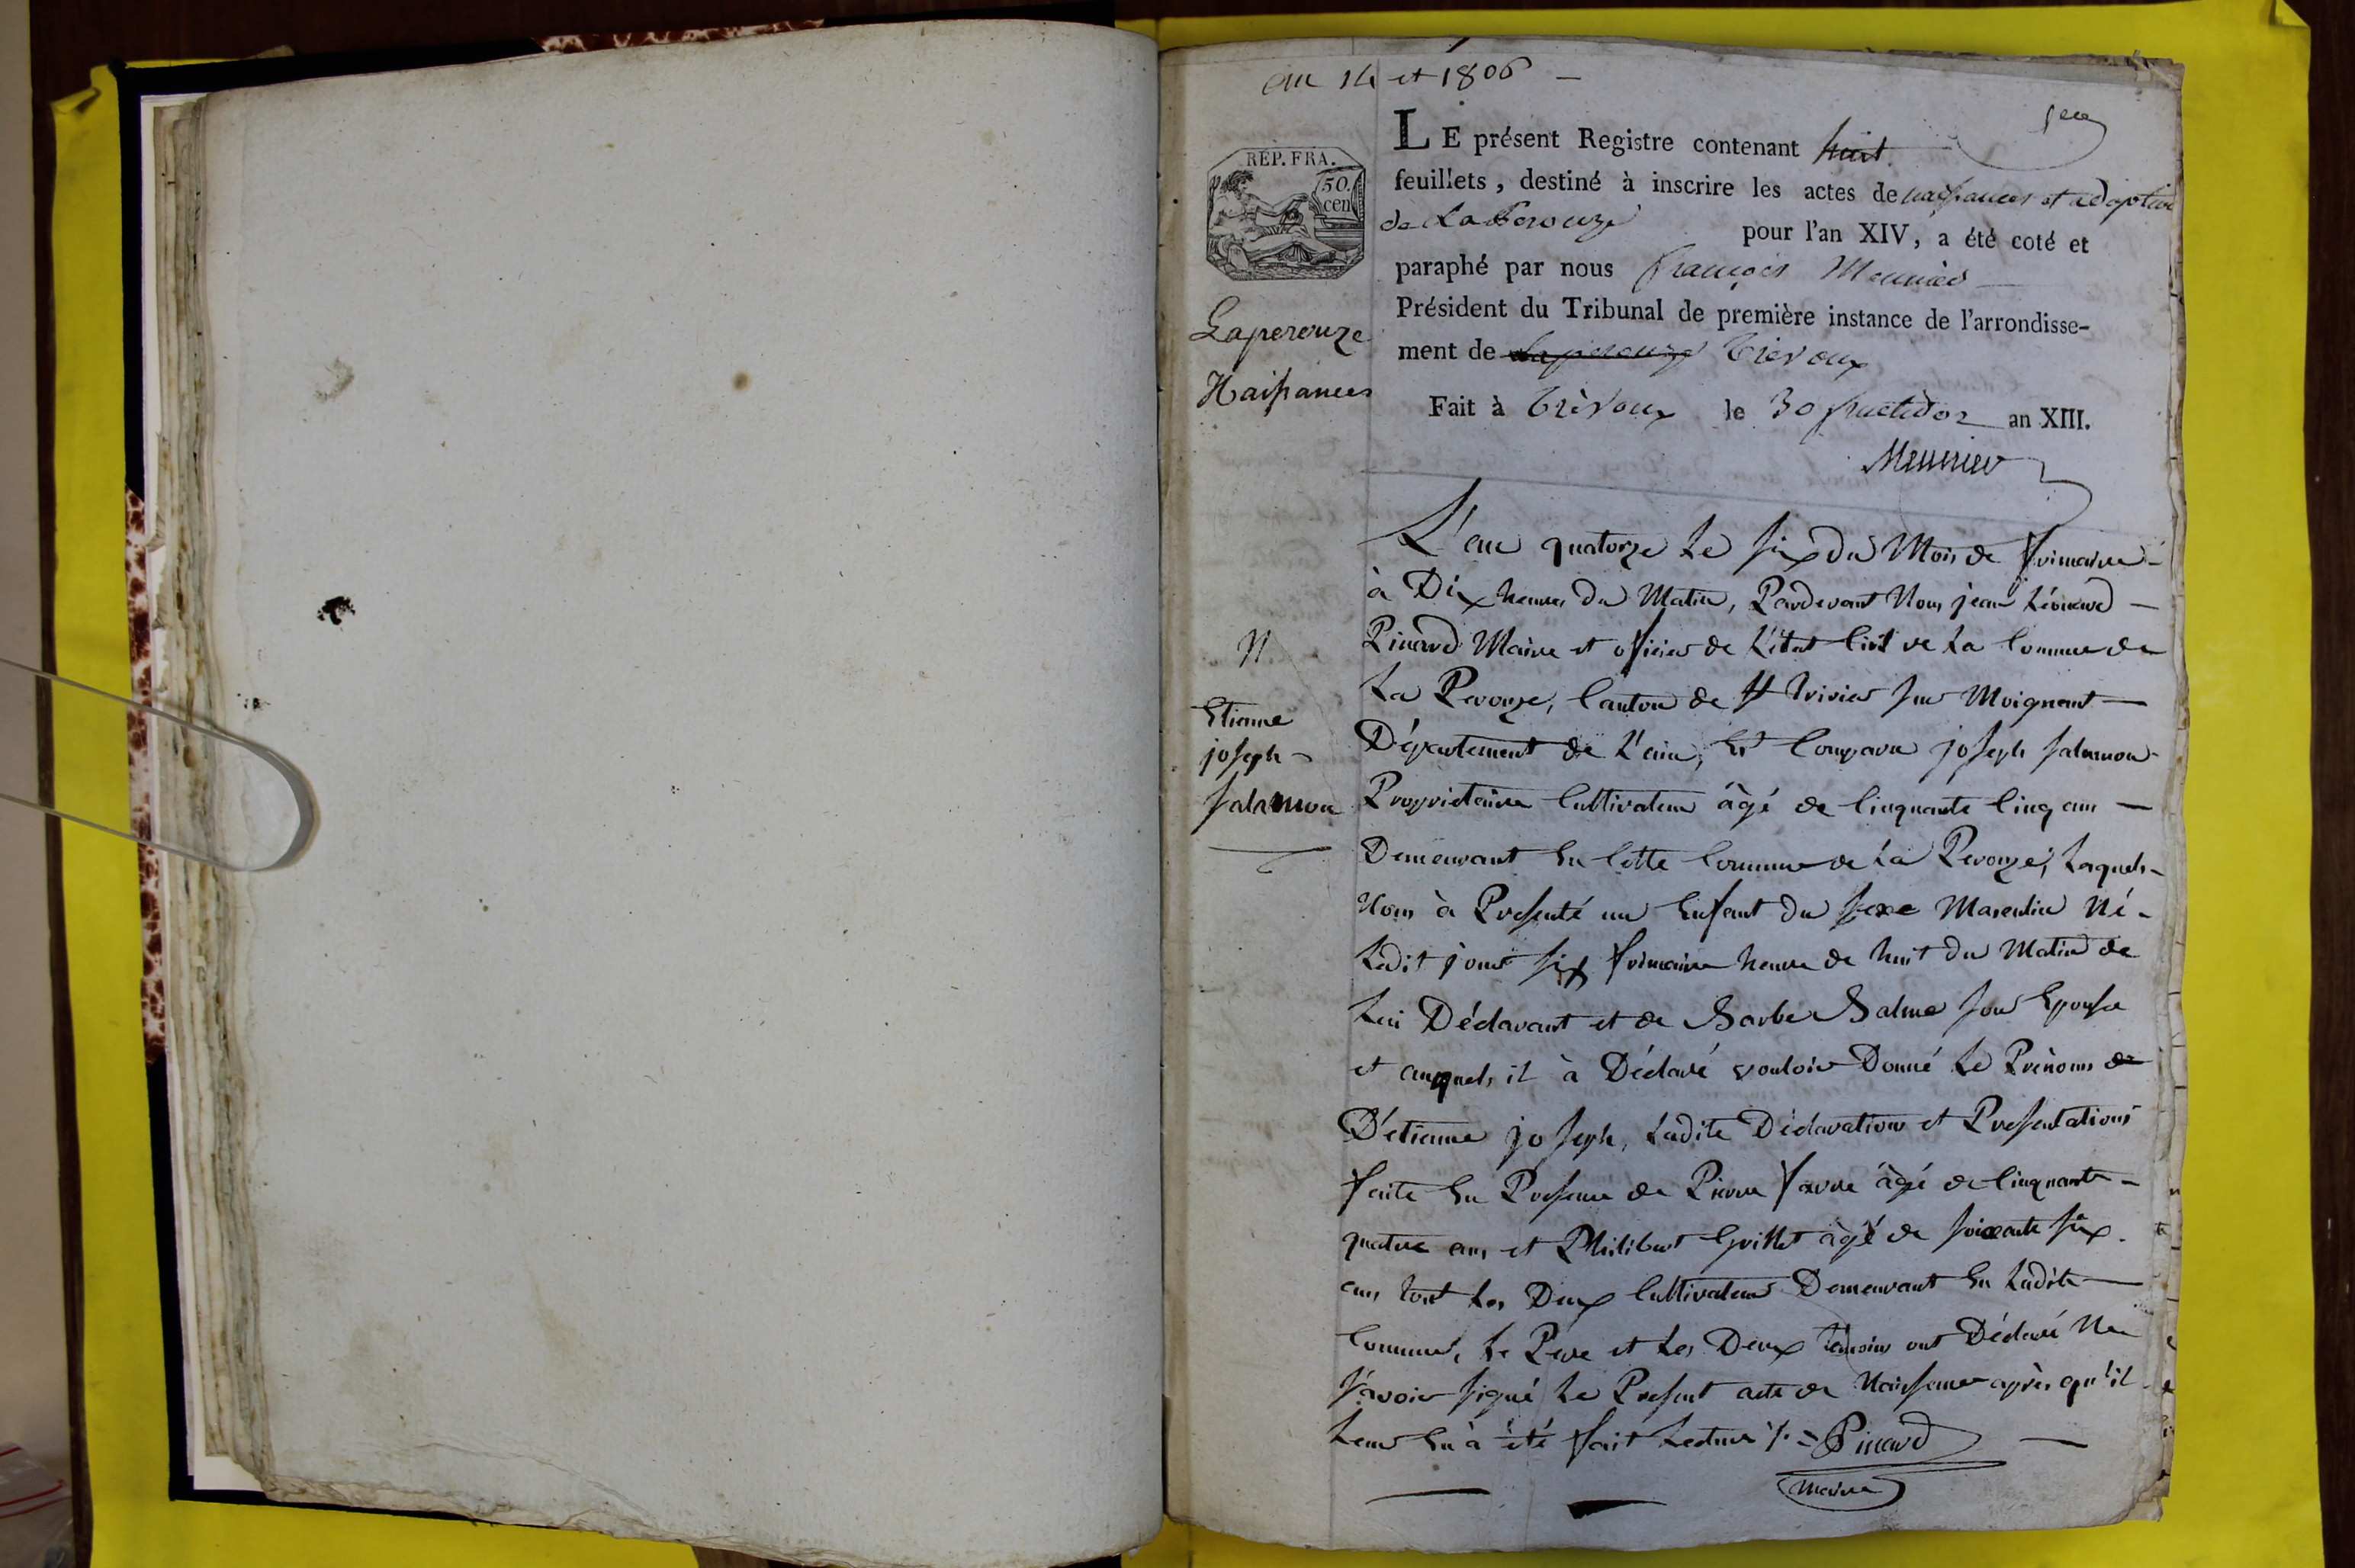 an 14 et 1806 —
1er
LE présent Registre contenant huit
feuillets, destiné à inscrire les actes de naissances et adoptions
de Laperouze pour l'an XIV, a été coté et
paraphé par nous françois Meunier
Président du Tribunal de première instance de l'arrondisse-
ment de Laperouze Trevoux
Fait à Trèvoux le 30 fructidor an XIII.
Meunier
REP. FRA.
50.
cen
Laperouze
Naissances
N
Etienne
joseph
Salamon
L'an quatorze Le six du Mois de frimaire
à Dix heures du Matin, Pardevant Nous jean Léonard
Pinard Maire et oficier de L'état Civil de La Commune de
La Perouze, Canton de St Trivier sur Moignant
Département de L'ain, Est Comparu joseph Salamon
Proprietaire Cultivateur âgé de Cinquante Cinq ans
Demeurant En Cette Commune de La Perouze, Laquels
Nous à Presenté un Enfant du sexe Masculin Né
Ledit jour six frimaire heure de huit du Matin de
Lui Déclarant et de Barbe Balme son Epouse
et auquels il à Déclaré vouloir Donné Le Prénoms de
D'etienne joseph, Ladite Déclaration et Presentations
faite En Presence de Pierre favre âgé de Cinquante
quatre ans et Philibert Grillet âgé de soixante six
ans tout Les Deux Cultivateurs Demeurant En Ladite
Commune, Le Pere et Les Deux témoins ont Déclaré Ne
s'avoir signé Le Present acte de Naissance après qu'il
Leur En à été fait Lecture Pinard
Maire